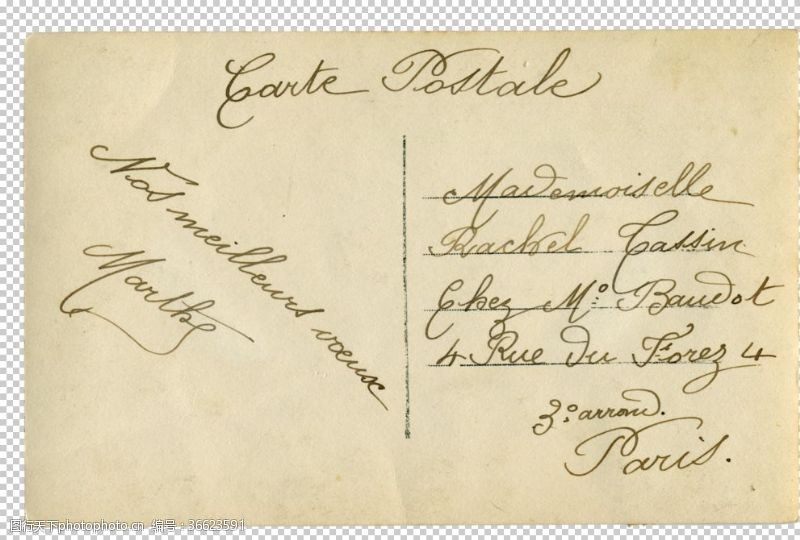 Carte Postale
Nos meilleurs vœux
Marthe
Mademoiselle
Rachel Cassin
Chez Mº Baudot
4 Rue du Forez 4
3º arrond.
Paris.
图行天下photophoto.cn 编号:36623591